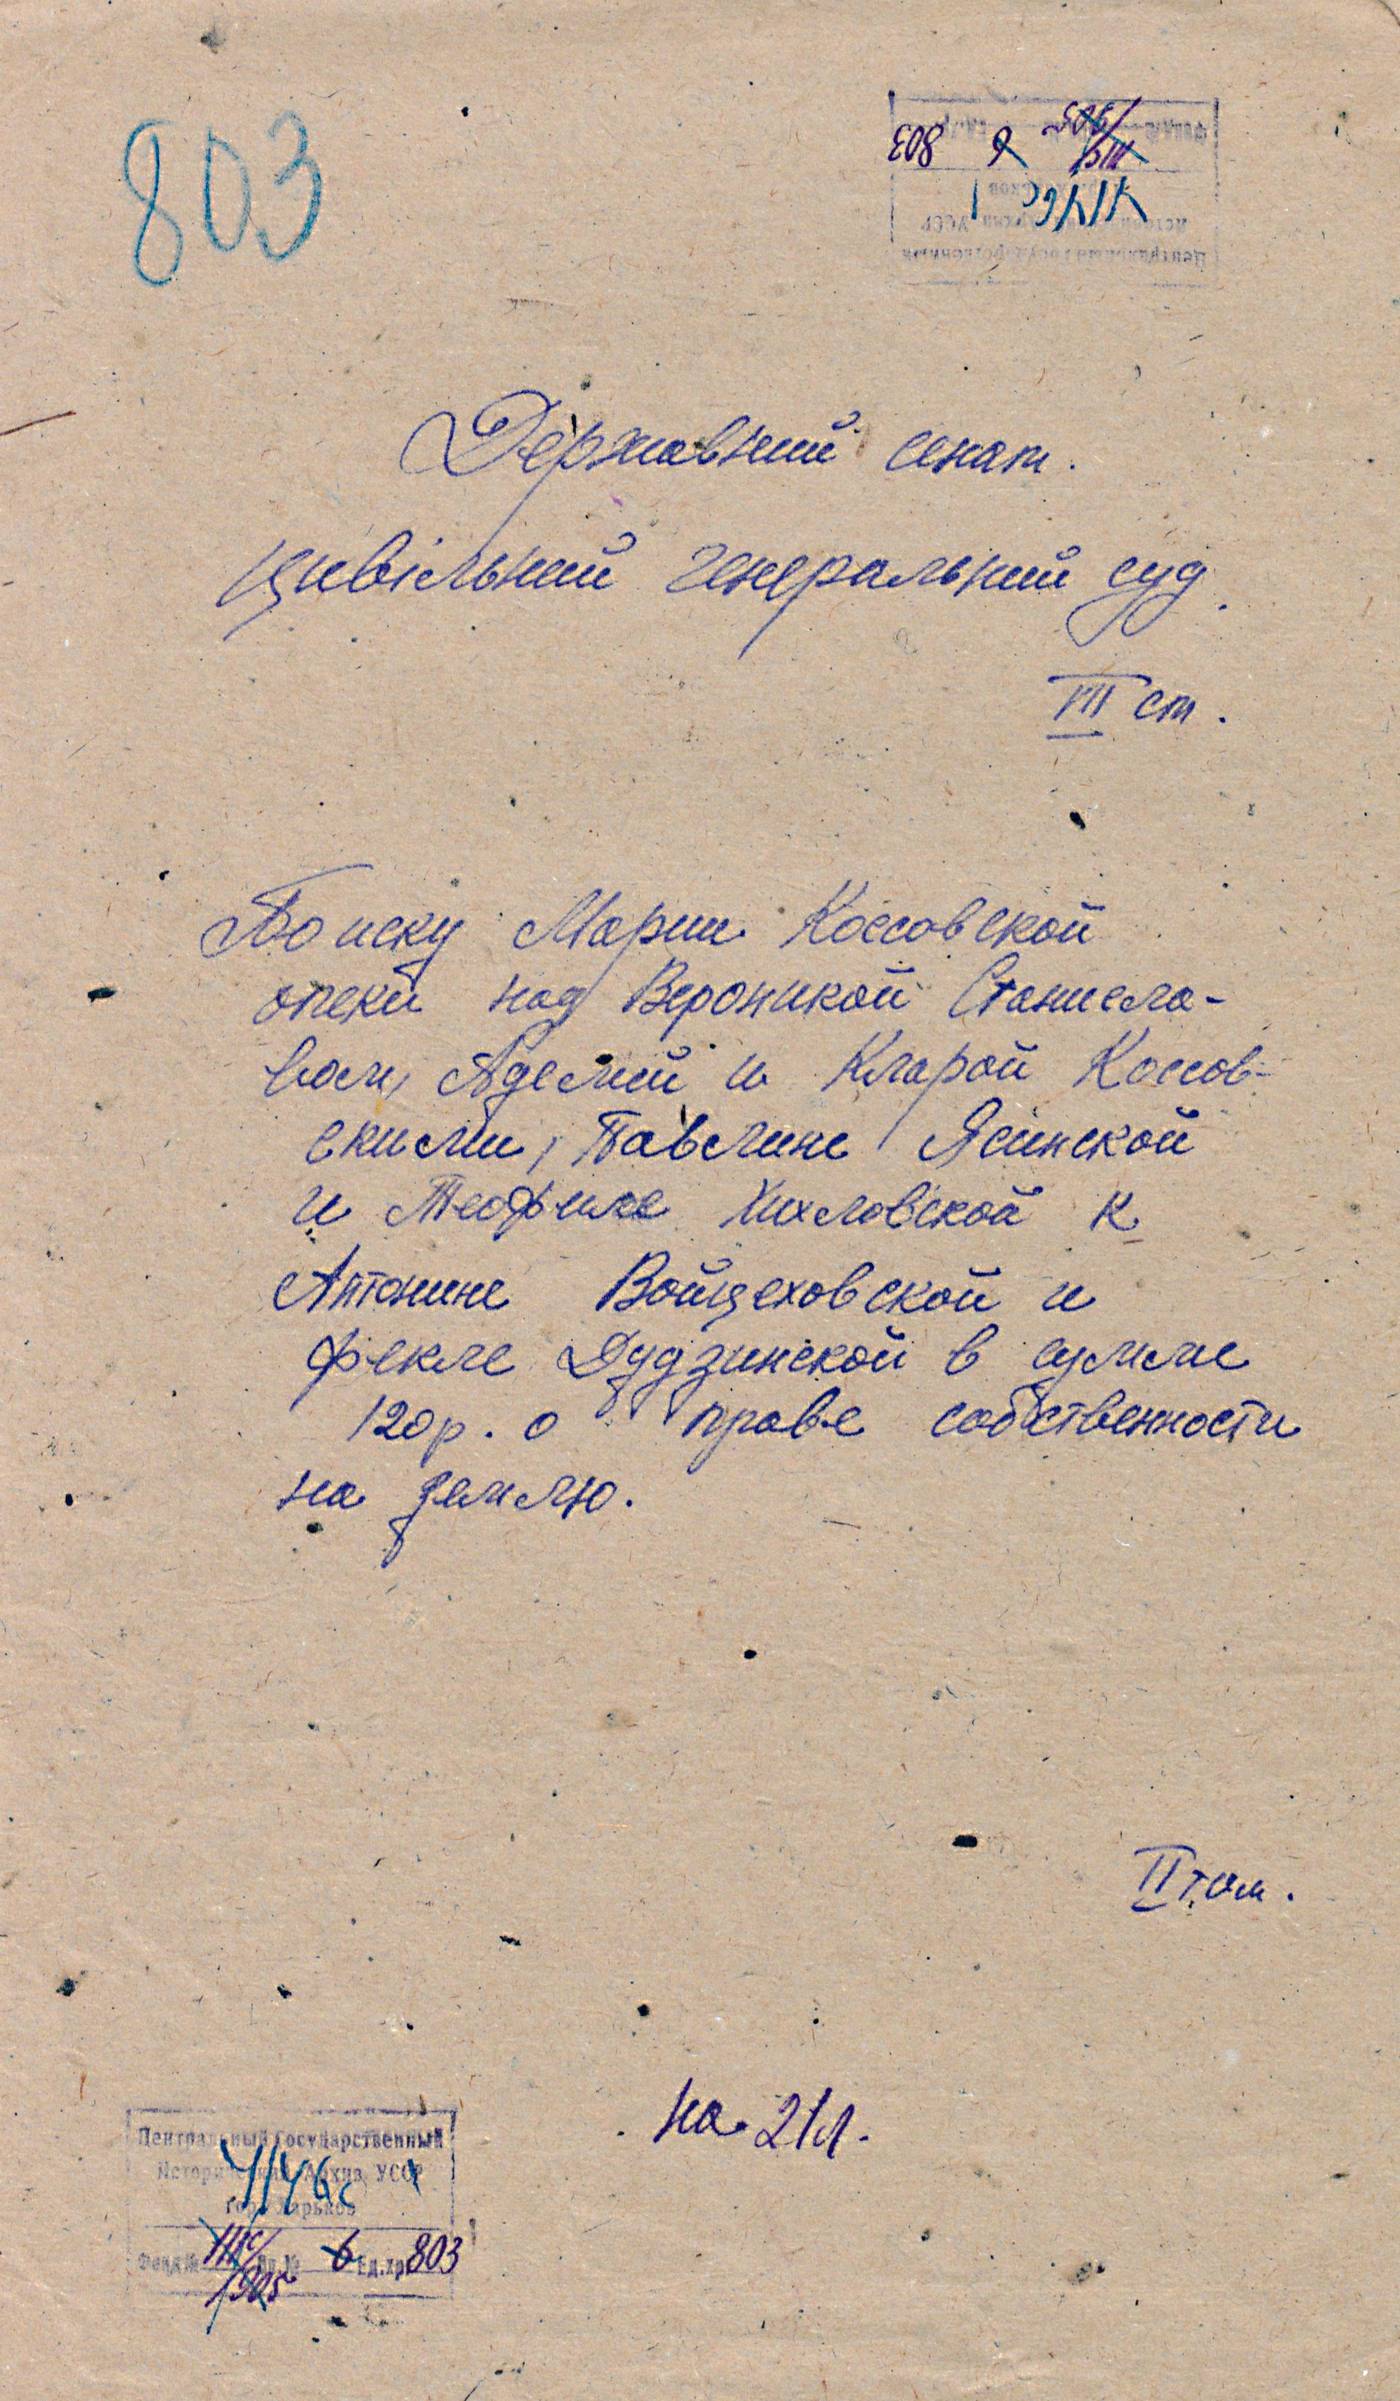 803
Державний сенат.
Цивільний генеральний суд.
III ст.
По иску Марии Коссовской
опеки над Вероникой Станисла-
вом, Аделей и Кларой Коссов-
скими, Павлине Ясинской
и Теофиле Хихловской к
Антонине Войцеховской и
Фекле Дудзинской в сумме
120 р. о праве собственности
на землю.
II том.
на 21 л.
Центральный Государственный
Исторический Архив УССР
гор. Харьков
Фонд № Оп. № 6 Ед.хр. 803
1905